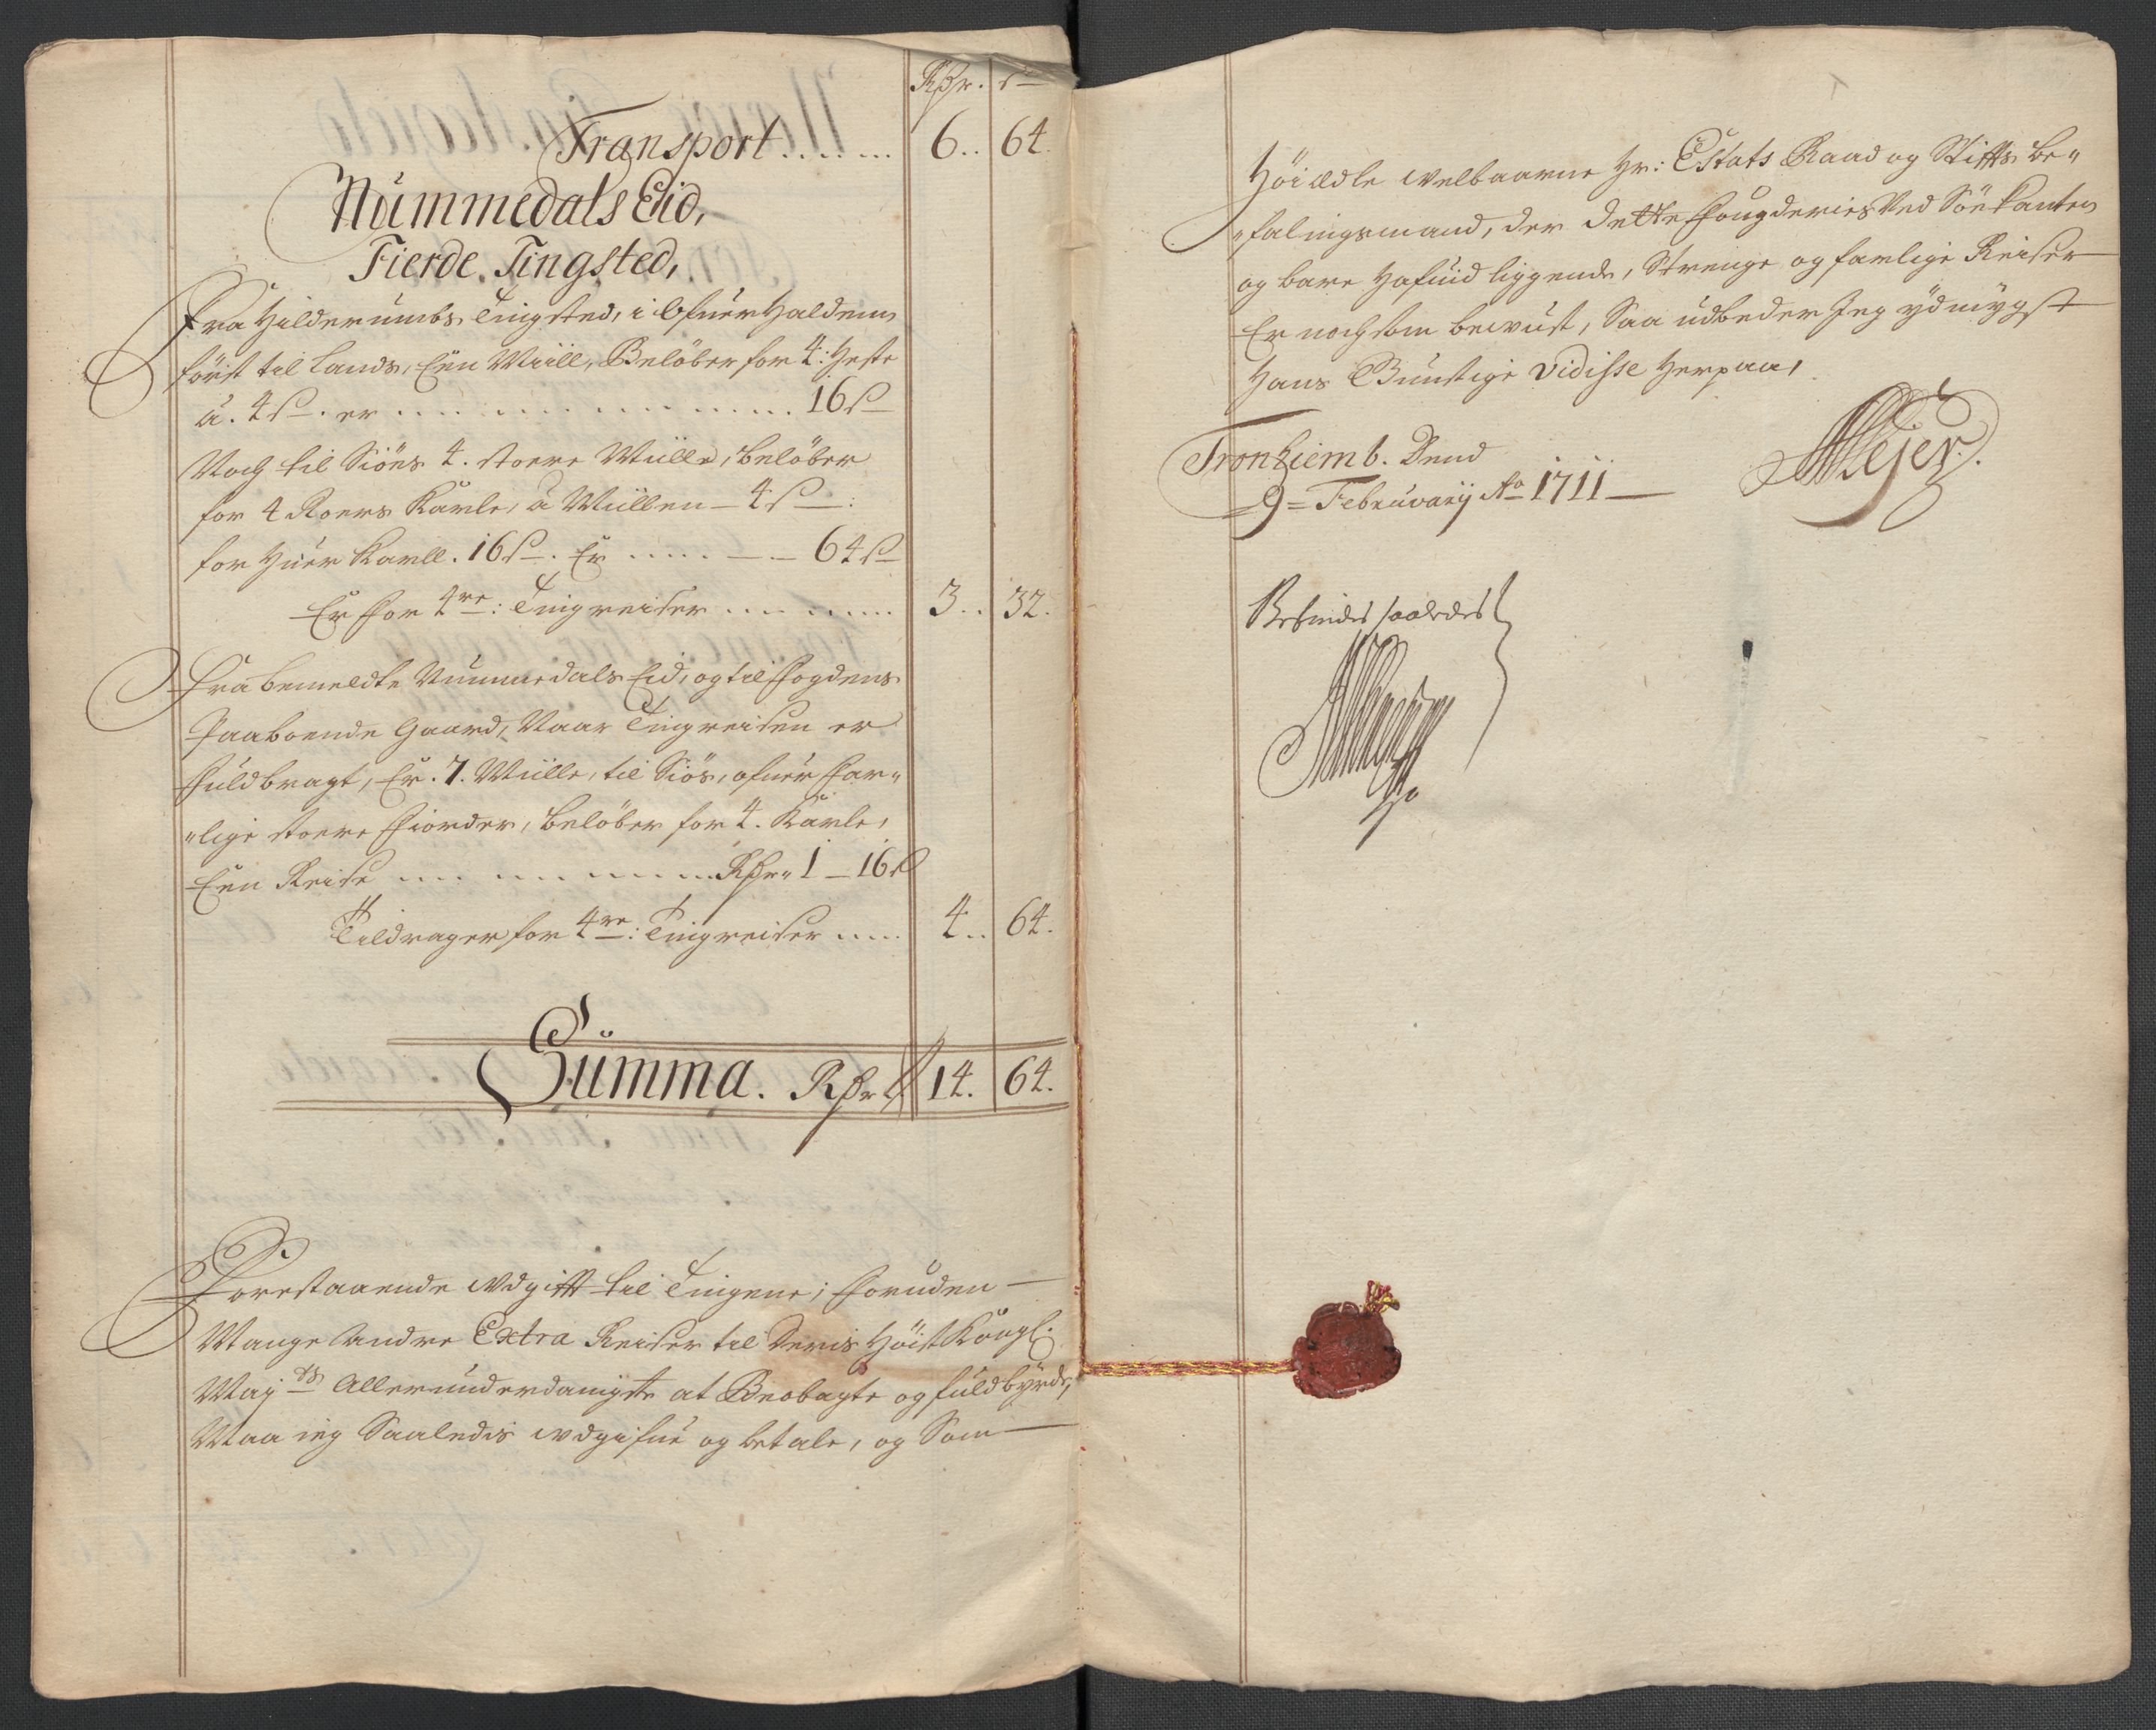 Rdr. s
Transport ....... 6.. 64.
Nummedals Eid,
Fierde. Tingsted,
Fra Hilderumbs Tingsted, i Ofuerhaldenn
först til Lands, Een Miill, Belöber for 4: Heste
à. 4 s. er .................. 16 s
Noch til Siöes 4. stoere Miille, belöber
for 4 Roers Karle, à Miillen - 4 s:
for Huer Karll. 16 s. Er ..... 64 s
Er for 4re: Tingreiser ....... 3.. 32.
Fra bemeldte Nummedals Eid, og til Fogdens
Paaboende Gaard, Naar Tingreisen er
Fuldbragt, Er. 7. Miille, til Siös, ofuer Far„
„lige stoere Fiorder, belöber for 4. Karle,
Een Reise ......... Rdr„ 1 - 16 s
Tildrager for 4re: Tingreiser ..... 4.. 64.
Summa. Rdr 14. 64.
Forestaaende Udgifft til Tingene; Foruden
Mange Andre Extra Reiser til Deris Höist Kongl.
Mayts Allerunderdanigste at Beobagte og fuldbyrde,
Maa ieg Saaledis udgifue og betale, og Som
Höi ædle welbaarne Hr: Estats Raad og Stiffts be„
„falingsmand, der dette Fougderies Ved Söekanten
og bare Hafuid liggende, Strenge og farlige Reiser
Er nochsom bewust, Saa udbeder Jeg ydmygst
Hans Gunstige Vidisse Herpaa,
Tronhiemb. Dend
9 Februarij Ao 1711
Befindes saaledes